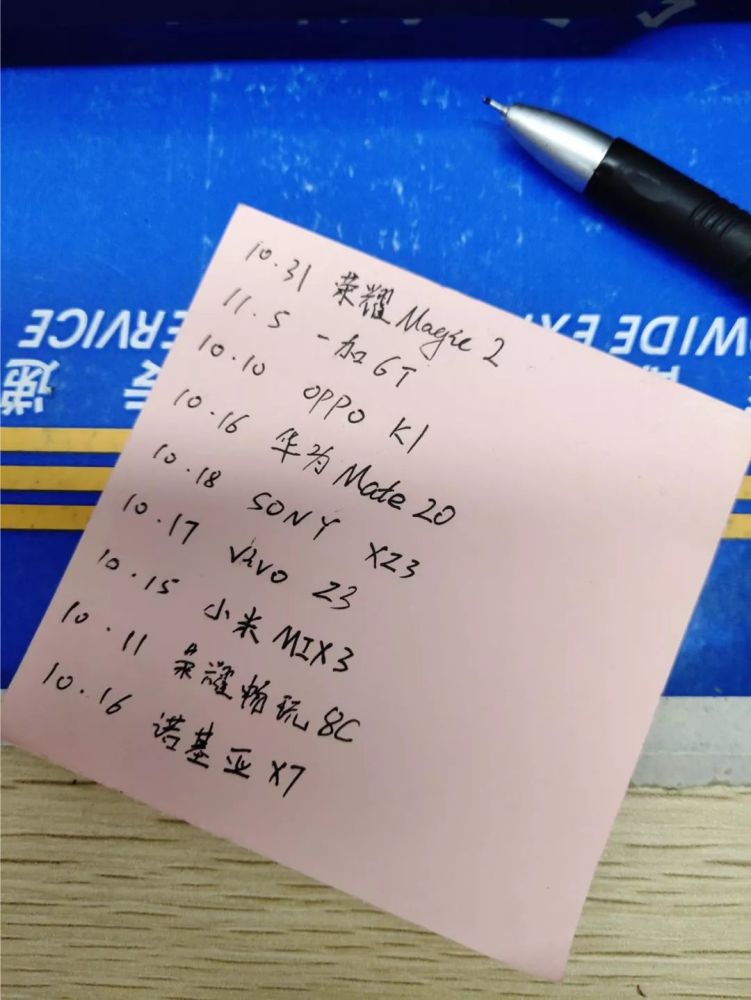 10.31 荣耀Magic 2
11.5 一加6T
10.10 OPPO K1
10.16 华为Mate 20
10.18 SONY XZ3
10.17 vivo Z3
10.15 小米MIX3
10.11 荣耀畅玩8C
10.16 诺基亚X7
SERVICE
WIDE EX
递 专